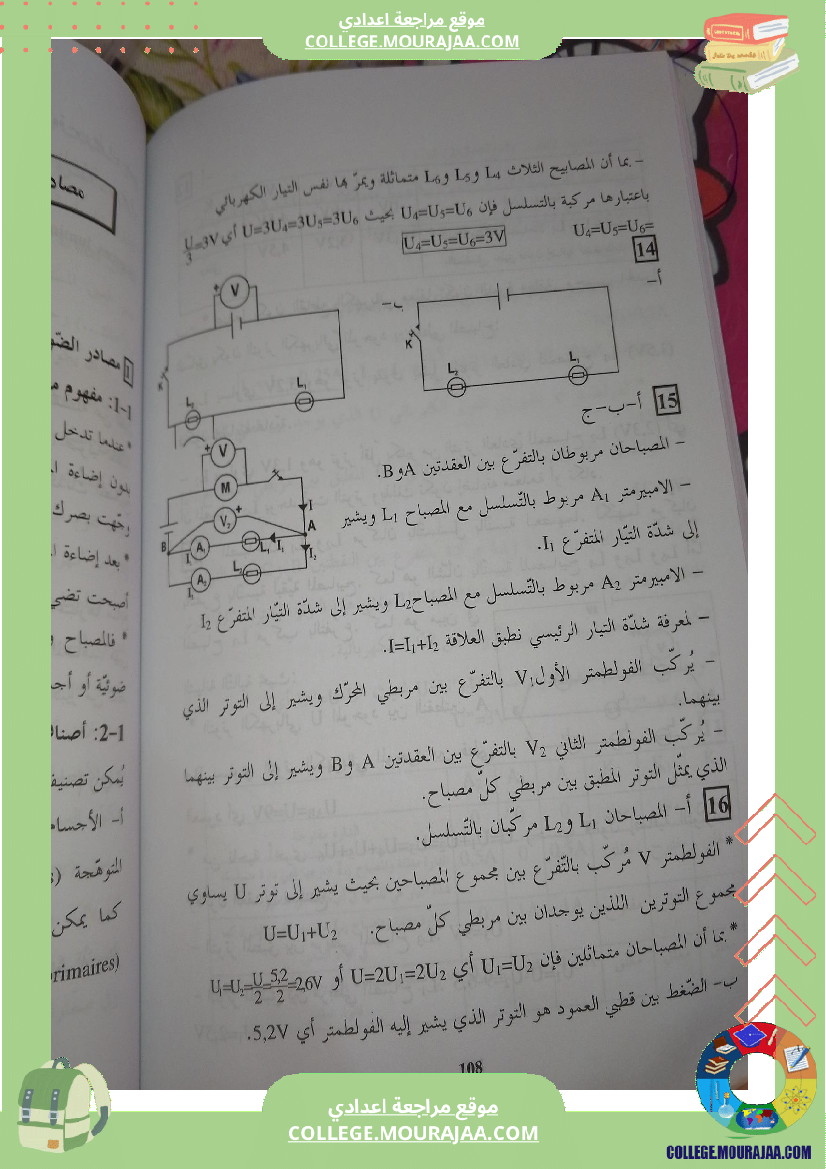 موقع مراجعة اعدادي
COLLEGE.MOURAJAA.COM
– بما أن المصابيح الثلاث L4 وL5 وL6 متماثلة ويمرّ بها نفس التيار الكهربائي
باعتبارها مركبة بالتسلسل فإن U4=U5=U6 بحيث U=3U4=3U5=3U6 أي U/3=3V
U4=U5=U6=
U4=U5=U6=3V
14
أ–
ب–
+ V
K
L2
L1
L1
15
أ–ب–ج
– المصباحان مربوطان بالتفرّع بين العقدتين A وB.
– الامبيرمتر A1 مربوط بالتّسلسل مع المصباح L1 ويشير
إلى شدّة التيّار المتفرّع I1.
– الامبيرمتر A2 مربوط بالتّسلسل مع المصباح L2 ويشير إلى شدّة التيّار المتفرّع I2
– لمعرفة شدّة التيار الرئيسي نطبق العلاقة I=I1+I2.
– يُركّب الفولطمتر الأول V1 بالتفرّع بين مربطي المحرّك ويشير إلى التوتر الذي
بينهما.
– يُركّب الفولطمتر الثاني V2 بالتفرّع بين العقدتين A وB ويشير إلى التوتر بينهما
الذي يمثّل التوتر المطبق بين مربطي كلّ مصباح.
+ V
M
I
V2 +
A
B
A1
L1
I1
I2
A2
L2
16
أ– المصباحان L1 وL2 مركّبان بالتّسلسل.
* الفولطمتر V مُركّب بالتّفرّع بين مجموع المصباحين بحيث يشير إلى توتر U يساوي
مجموع التوترين اللذين يوجدان بين مربطي كلّ مصباح. U=U1+U2
* بما أن المصباحان متماثلين فإن U1=U2 أي U=2U1=2U2 أو U1=U2=U/2=5,2/2=2,6V
ب– الضّغط بين قطبي العمود هو التوتر الذي يشير إليه الفولطمتر أي 5,2V.
108
1-1: مفهوم
* عندما تدخل
بدون إضاءة
وجّهت بصرك
* بعد إضاءة
أصبحت
* فالمصباح
ضوئيّة أو
2-1:
يُمكن
أ– الأجسام
المتوهّجة
كما يمكن
(rimaires
موقع مراجعة اعدادي
COLLEGE.MOURAJAA.COM
COLLEGE.MOURAJAA.COM